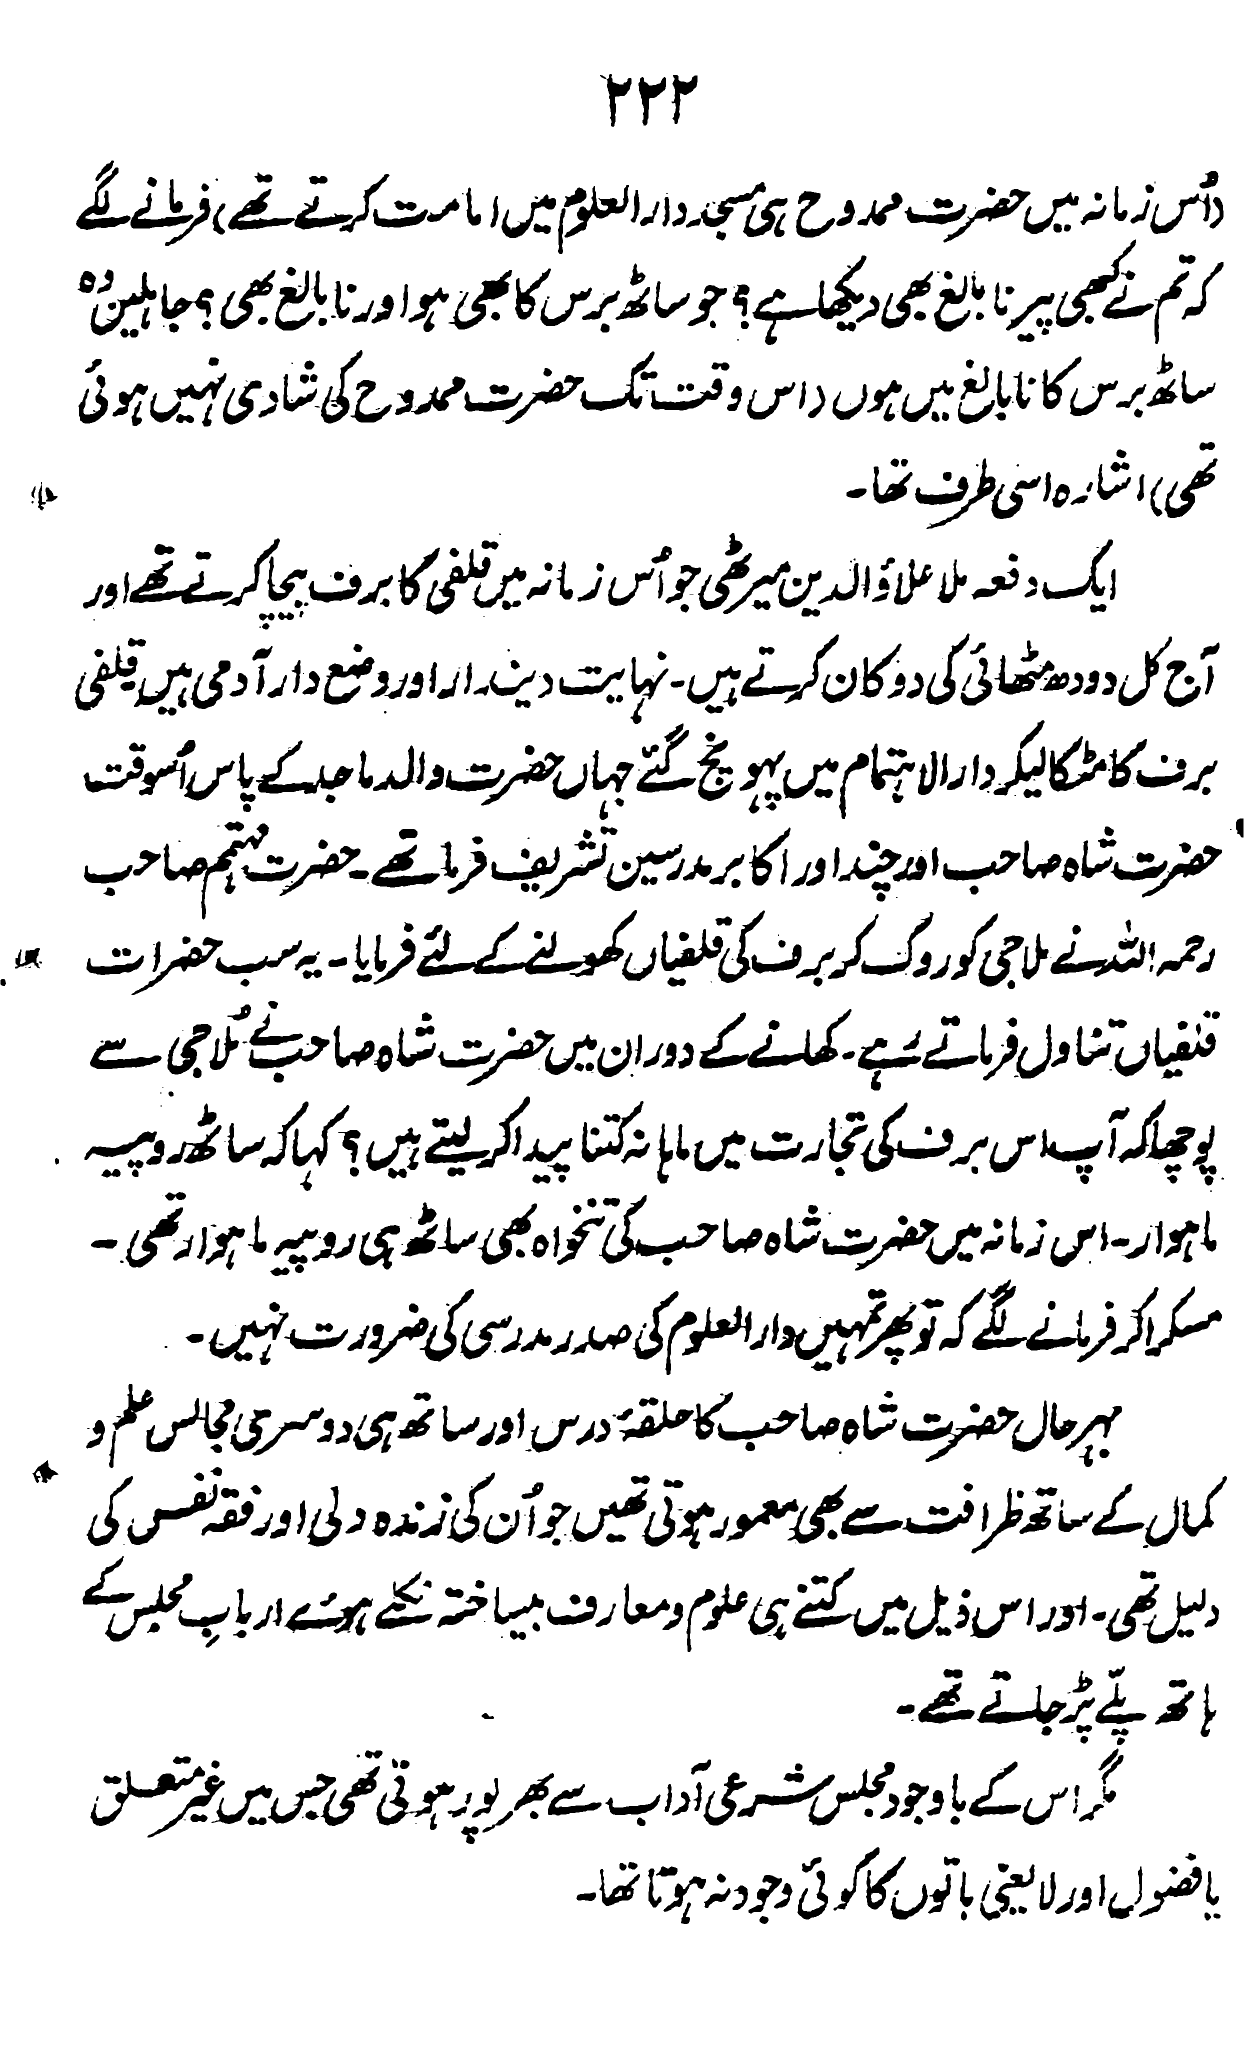 ۲۲۲
(اُس زمانہ میں حضرت ممدوح ہی مسجد دارالعلوم میں امامت کرتے تھے) فرمانے لگے
کہ تم نے کبھی پیر نابالغ بھی دیکھا ہے؟ جو ساٹھ برس کا بھی ہو اور نابالغ بھی؟ جاہلین وہ
ساٹھ برس کا نابالغ میں ہوں (اس وقت تک حضرت ممدوح کی شادی نہیں ہوئی
تھی) اشارہ اسی طرف تھا۔
ایک دفعہ ملا علاؤالدین میرٹھی جو اُس زمانہ میں قلفی کا برف بیچا کرتے تھے اور
آج کل دودھ مٹھائی کی دوکان کرتے ہیں۔ نہایت دیندار اور وضع دار آدمی ہیں۔ قلفی
برف کا مٹکا لیکر دارالاہتمام میں پہونچ گئے جہاں حضرت والد ماجد کے پاس اُسوقت
حضرت شاہ صاحب اور چند اور اکابر مدرسین تشریف فرما تھے۔ حضرت مہتمم صاحب
رحمہ اللہ نے ملا جی کو روک کر برف کی قلفیاں کھولنے کے لئے فرمایا۔ یہ سب حضرات
قلفیاں تناول فرماتے رہے۔ کھانے کے دوران میں حضرت شاہ صاحب نے مُلا جی سے
پوچھا کہ آپ اس برف کی تجارت میں ماہانہ کتنا پیدا کرلیتے ہیں؟ کہا کہ ساٹھ روپیہ
ماہوار۔ اس زمانہ میں حضرت شاہ صاحب کی تنخواہ بھی ساٹھ ہی روپیہ ماہوار تھی۔
مسکرا کر فرمانے لگے کہ تو پھر تمہیں دارالعلوم کی صدر مدرسی کی ضرورت نہیں۔
بہرحال حضرت شاہ صاحب کا حلقۂ درس اور ساتھ ہی دوسری مجالس علم و
کمال کے ساتھ ظرافت سے بھی معمور ہوتی تھیں جو اُن کی زندہ دلی اور فقہ نفس کی
دلیل تھی۔ اور اس ذیل میں کتنے ہی علوم و معارف بیساختہ نکلتے ہوئے اربابِ مجلس کے
ہاتھ پلّے پڑ جاتے تھے۔
مگر اس کے باوجود مجلس شرعی آداب سے بھرپور ہوتی تھی جس میں غیر متعلق
یا فضول اور لایعنی باتوں کا کوئی وجود نہ ہوتا تھا۔